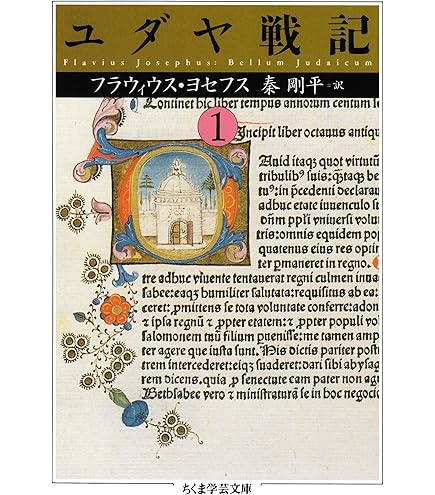 ユダヤ戦記
Flavius Josephus: Bellum Judaicum
フラウィウス・ヨセフス 秦 剛平=訳
1
Continet hic liber tempus annorum centum
Incipit liber octauus antiqu
Auid itaqꝫ quot virtutū
tribulibꝰ suis:
declarau
aduc etate iuuenculo
vniuersi
tris:omnis equidem
quatenus eius res
ter ꝑmaneret in regno.
tre adhuc viuente tentauerat regni culmen
sabee:eaqꝫ humiliter salutata:requisitus ab ea
ceret:ꝓmittens se tota voluntate conferre:
ipsa regnū ꝛ ꝓpter etatem:ꝛ ꝓpter populi
salomonem tuū filium me tamen
ter agere que iusta sunt. His dictis pariter
trem intercederet:eiqꝫ suaderet:dari sibi abysag
rem dicens. quia ꝓ senectute cam pater non
Bethsabee vero ꝛ ministraturā se in hoc
ちくま学芸文庫